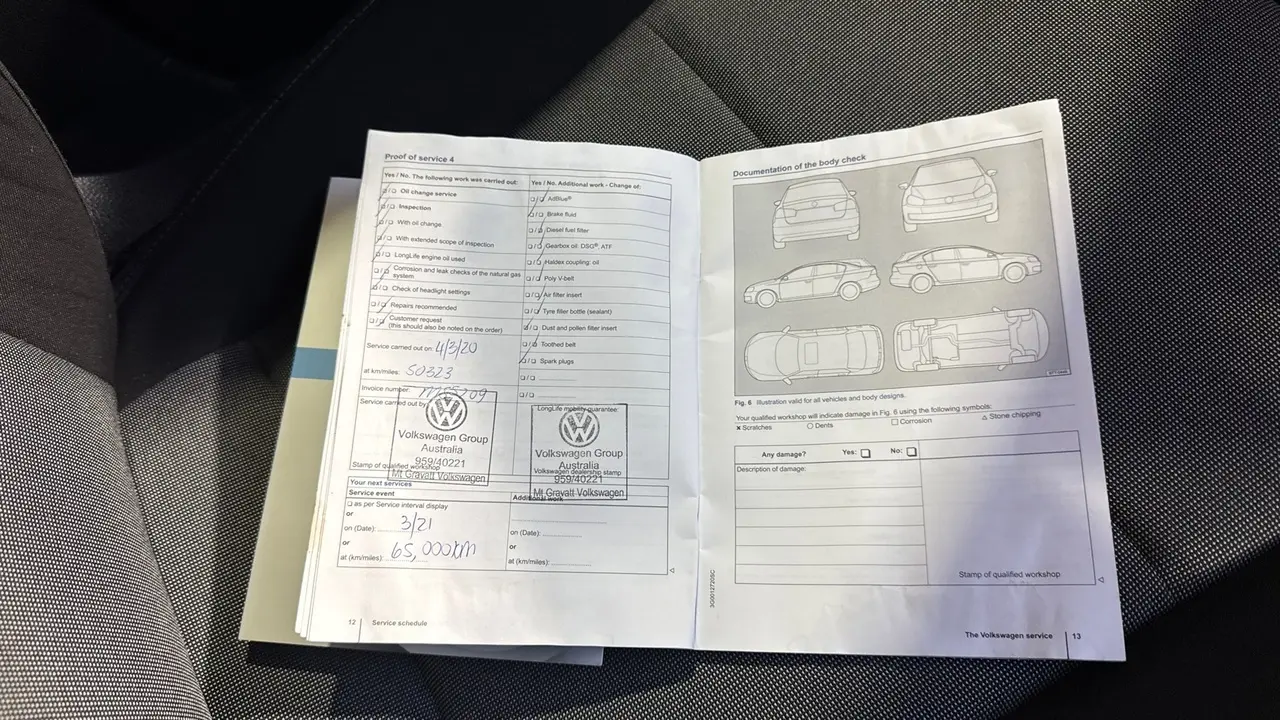 Proof of service 4
Yes / No. The following work was carried out:
❑/❑ Oil change service
❑/❑ Inspection
❑/❑ With oil change
❑/❑ With extended scope of inspection
❑/❑ LongLife engine oil used
❑/❑ Corrosion and leak checks of the natural gas
system
❑/❑ Check of headlight settings
❑/❑ Repairs recommended
❑/❑ Customer request
(this should also be noted on the order)
Service carried out on: 4/3/20
at km/miles: 50323
Invoice number:
Service carried out by
Volkswagen Group
Australia
959/40221
Mt Gravatt Volkswagen
Stamp of qualified workshop
Yes / No. Additional work - Change of:
❑/❑ AdBlue®
❑/❑ Brake fluid
❑/❑ Diesel fuel filter
❑/❑ Gearbox oil: DSG®, ATF
❑/❑ Haldex coupling: oil
❑/❑ Poly V-belt
❑/❑ Air filter insert
❑/❑ Tyre filler bottle (sealant)
❑/❑ Dust and pollen filter insert
❑/❑ Toothed belt
❑/❑ Spark plugs
❑/❑
❑/❑
LongLife mobility guarantee:
Volkswagen Group
Australia
959/40221
Mt Gravatt Volkswagen
Volkswagen dealership stamp
Your next services
Service event
❑ as per Service interval display
or
on (Date): 3/21
or
at (km/miles): 65,000km
Additional work
on (Date):
or
at (km/miles):
12 Service schedule
Documentation of the body check
Fig. 6 Illustration valid for all vehicles and body designs.
Your qualified workshop will indicate damage in Fig. 6 using the following symbols:
✕ Scratches ○ Dents □ Corrosion △ Stone chipping
Any damage? Yes: ❑ No: ❑
Description of damage:
Stamp of qualified workshop
3G0012720SC
The Volkswagen service 13